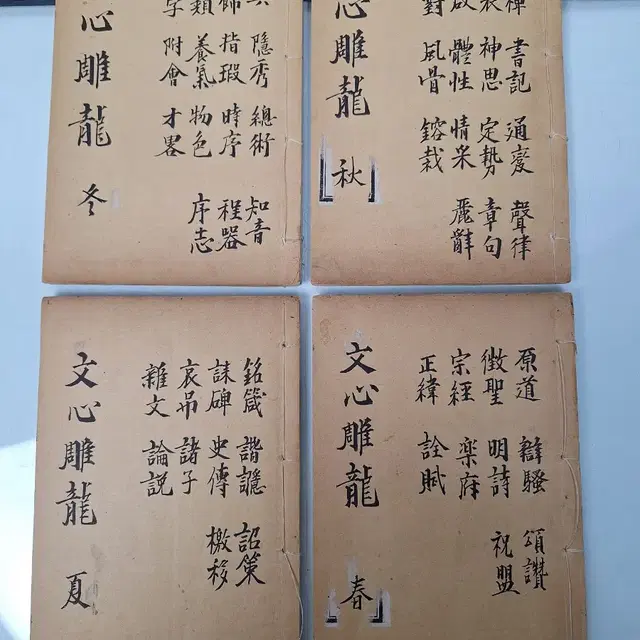 書記 通變 聲律
神思 定勢 章句
啟 體性 情采 麗辭
對 風骨 鎔裁
心雕龍 秋
隱秀 總術 知音
飾 指瑕 時序 程器
類 養氣 物色 序志
字 附會 才畧
心雕龍 冬
原道 辨騷 頌讚
徵聖 明詩 祝盟
宗經 楽府
正緯 詮賦
文心雕龍 春
銘箴 諧讔 詔策
誄碑 史傳 檄移
哀吊 諸子
雜文 論説
文心雕龍 夏